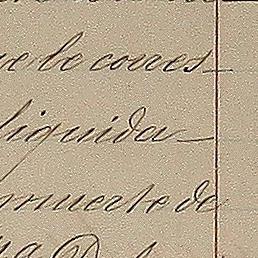 ue le corres-
liquida-
muerte de